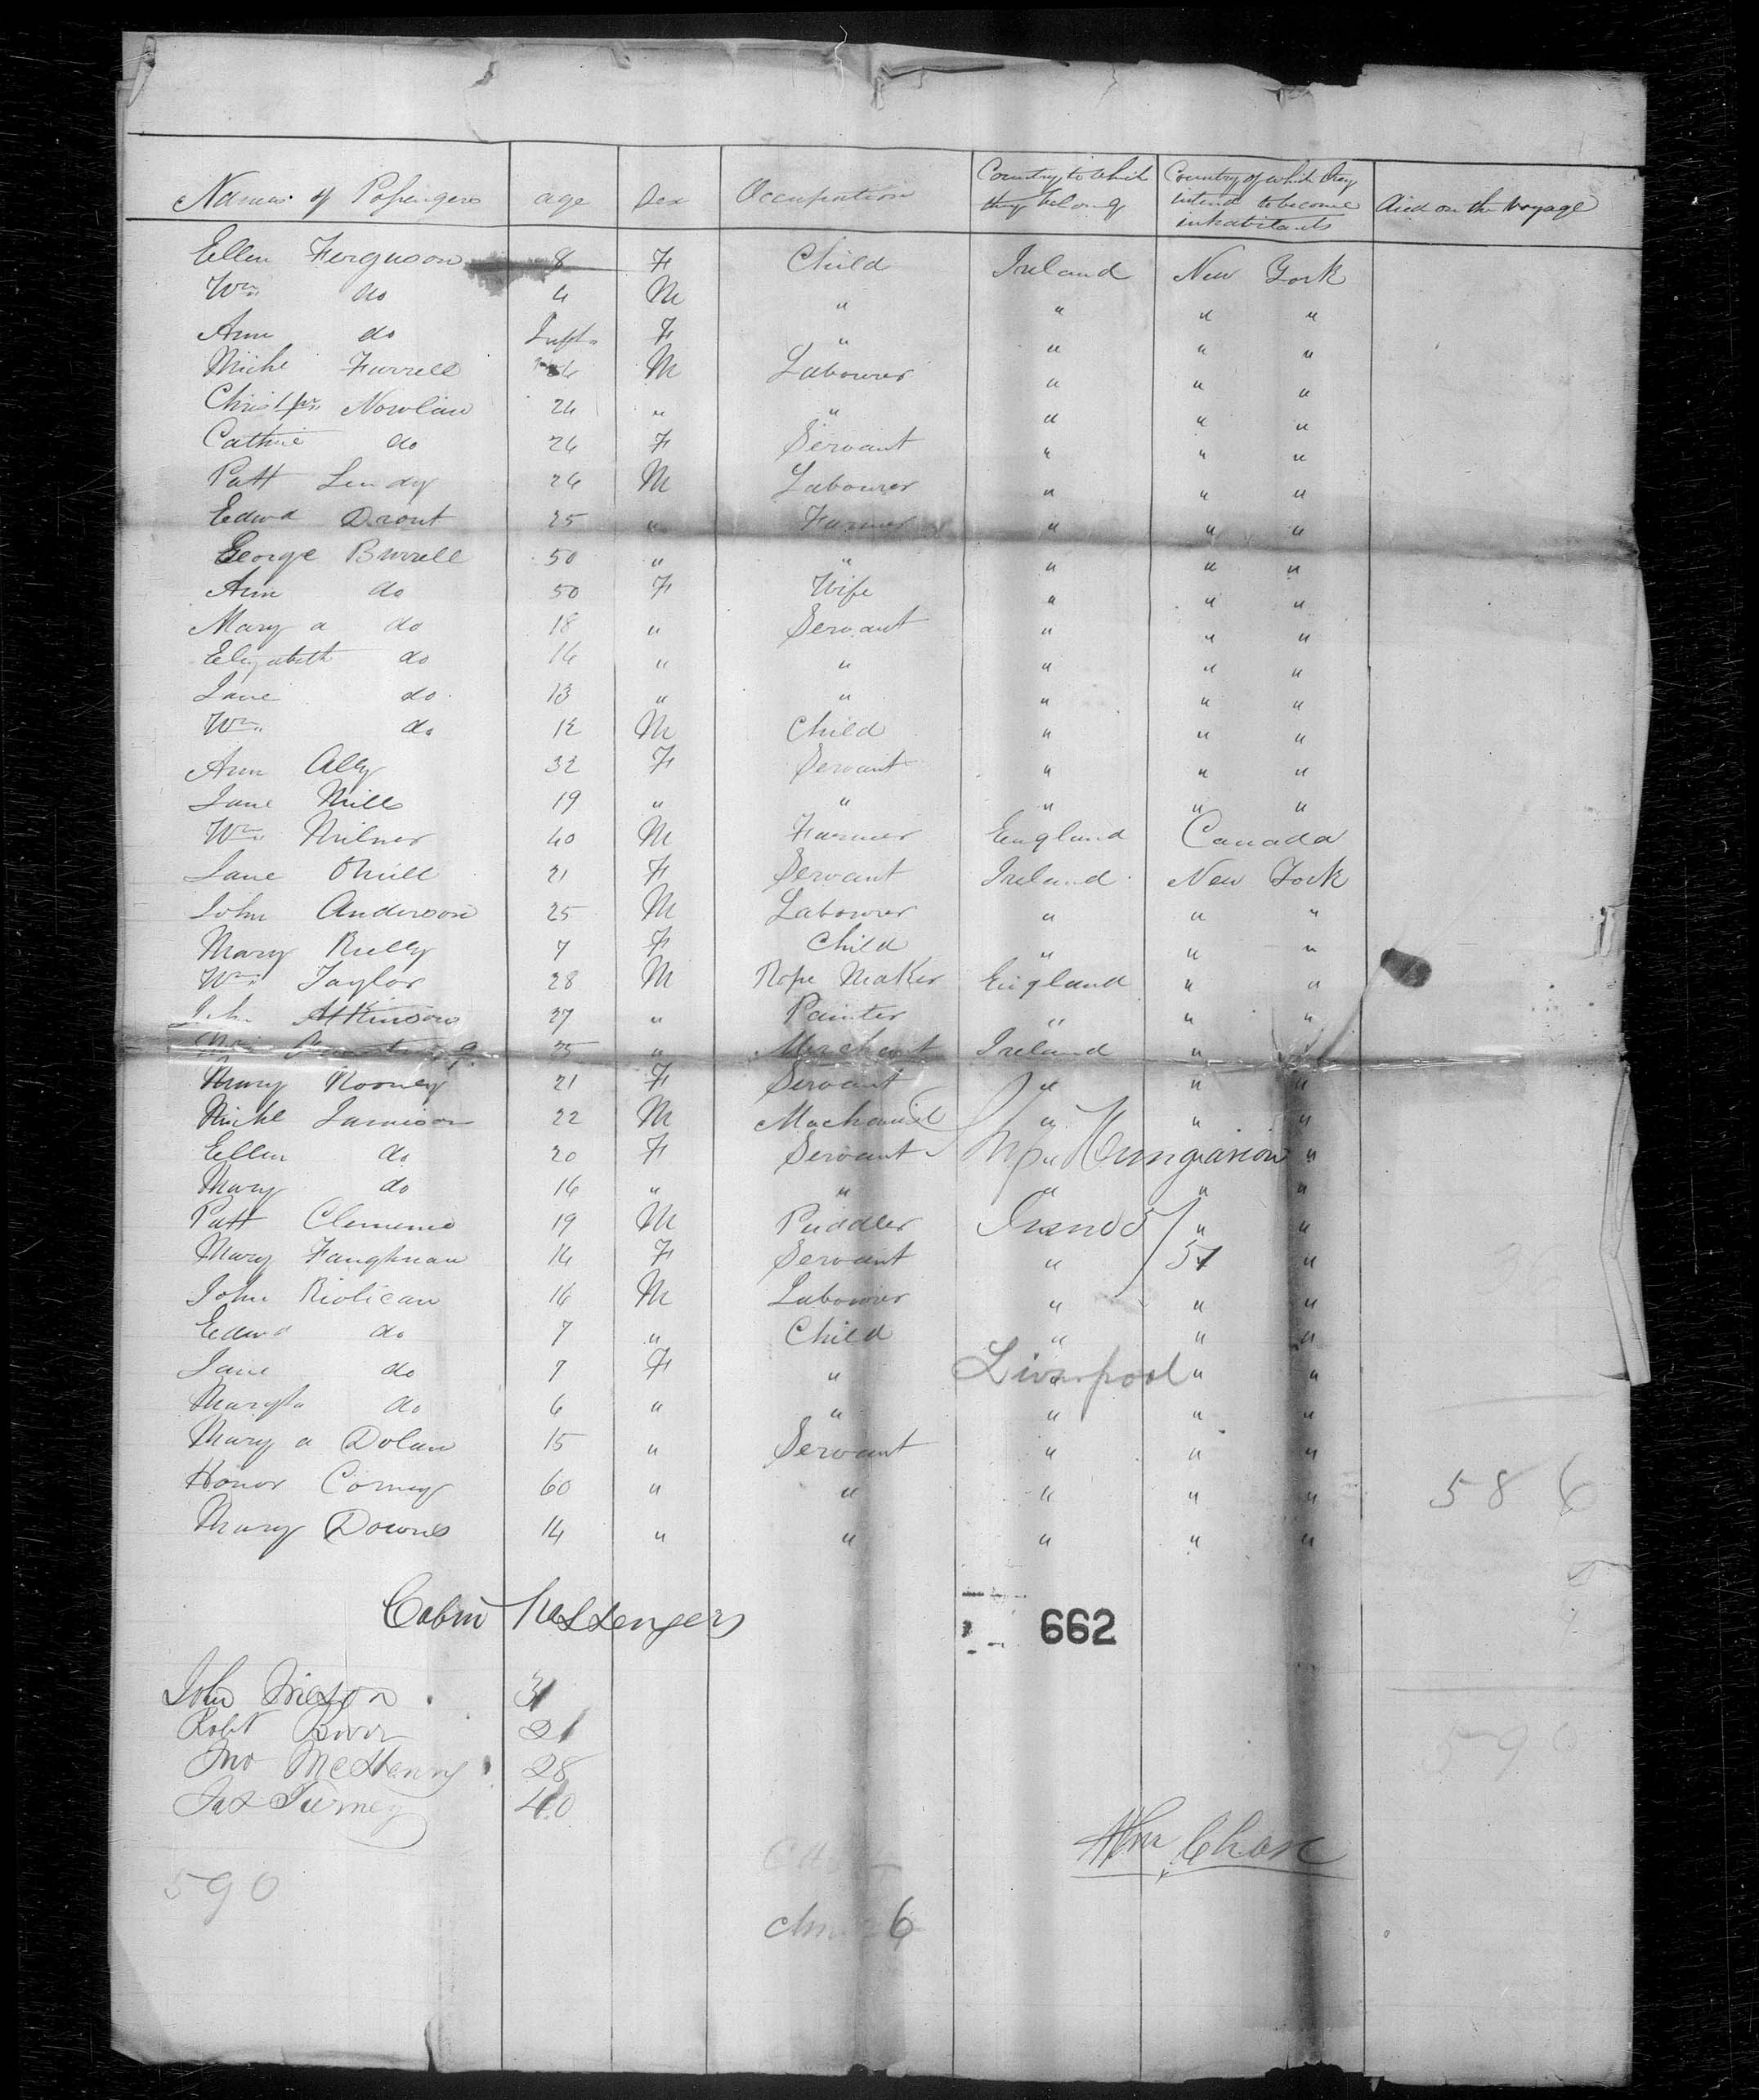 Names of Passengers age Sex Occupation Country to which they belong Country of which they intend to become inhabitants died on the Voyage
Ellen Ferguson 8 F Child Ireland New York
Wm do 4 M " " " "
Ann do Inft F " " " "
Michl Farrell M Labourer " " "
Christpr Nowlan 24 " " " " "
Cathne do 26 F Servant " " "
Patt Lendy 26 M Labourer " " "
Edwd Dront 25 " Farmer " " "
George Burrell 50 " " " " "
Ann do 50 F Wife " " "
Mary a do 18 " Servant " " "
Elizabeth do 16 " " " " "
Jane do 13 " " " " "
Wm do 12 M Child " " "
Ann Ally 32 F Servant " " "
Jane Mills 19 " " " " "
Wm Milner 40 M Farmer England Canada
Jane ONeill 21 F Servant Ireland New York
John Anderson 25 M Labourer " " "
Mary Rielly 7 F Child " " "
Wm Taylor 28 M Rope Maker England " "
John Atkinson 27 " Painter " " "
Wm 25 " Merchant Ireland " "
Mary Rooney 21 F Servant " " "
Michl Jamison 22 M Mechanic " " "
Ellen do 20 F Servant " " "
Hungarian
Mary do 16 " " " " "
Patt Clemens 19 M Puddler " "
June 5/51
Mary Faughnan 14 F Servant " "
John Riolican 16 M Labourer " " "
Edwd do 7 " Child " " "
Jane do 7 F " " " "
Liverpool
Margta do 6 " " " " "
Mary a Dolan 15 " Servant " " "
Honor Comey 60 " " " " "
586
Mary Downs 14 " " " " "
Cabin Passengers
662
John 31
Robt 21
Jno McHenry 28
590
Jas Turney 40
Chase
590
6